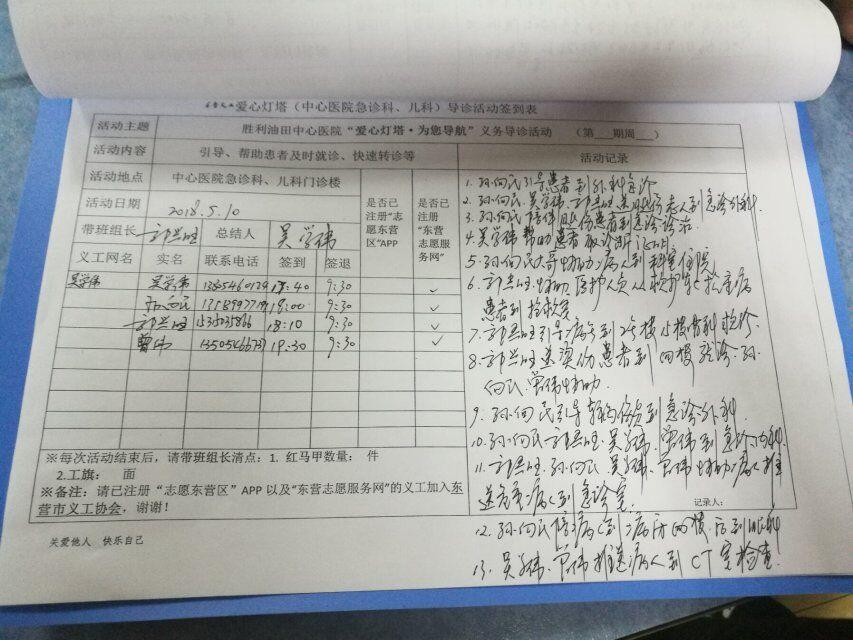 爱心灯塔（中心医院急诊科、儿科）导诊活动签到表
活动主题 胜利油田中心医院“爱心灯塔·为您导航”义务导诊活动 （第__期周__）
活动内容 引导、帮助患者及时就诊、快速转诊等 活动记录
活动地点 中心医院急诊科、儿科门诊楼 是否已注册“志愿东营区”APP 是否已注册“东营志愿服务网”
活动日期 2018.5.10
带班组长 郭兰旺 总结人 吴学伟
义工网名 实名 联系电话 签到 签退
吴学伟 吴学伟 18:40 9:30 ✓
孙向民 18:00 9:30 ✓
郭兰旺 18:10 9:30 ✓
曹伟 19:30 9:30 ✓
※每次活动结束后，请带班组长清点：1. 红马甲数量： 件
2.工旗： 面
※备注：请已注册“志愿东营区”APP 以及“东营志愿服务网”的义工加入东
营市义工协会，谢谢！
关爱他人 快乐自己
1. 孙向民引导患者到外科急诊
2. 孙向民 吴学伟 郭兰旺 伤老人到急诊外科.
3. 孙向民陪伴 伤患者到急诊诊治
4. 吴学伟帮助患者 诊断证明
5. 孙向民大哥协助病人到科室住院
6. 郭兰旺协助医护人员从救护车 病
患者到抢救室
7. 郭兰旺引导病号到2号楼 急诊
8. 郭兰旺送烫伤患者到四楼就诊.孙
向民 曹伟协助.
9. 孙向民引导 伤员到急诊外科
10. 孙向民 郭兰旺 吴学伟 曹伟到急诊内科
11. 郭兰旺. 孙向民 吴学伟 曹伟协助病人推
送危重病人到急诊室.
记录人：
12. 孙向民陪病 到病房四楼.后到眼科
13. 吴学伟. 曹伟推送病人到CT室检查.